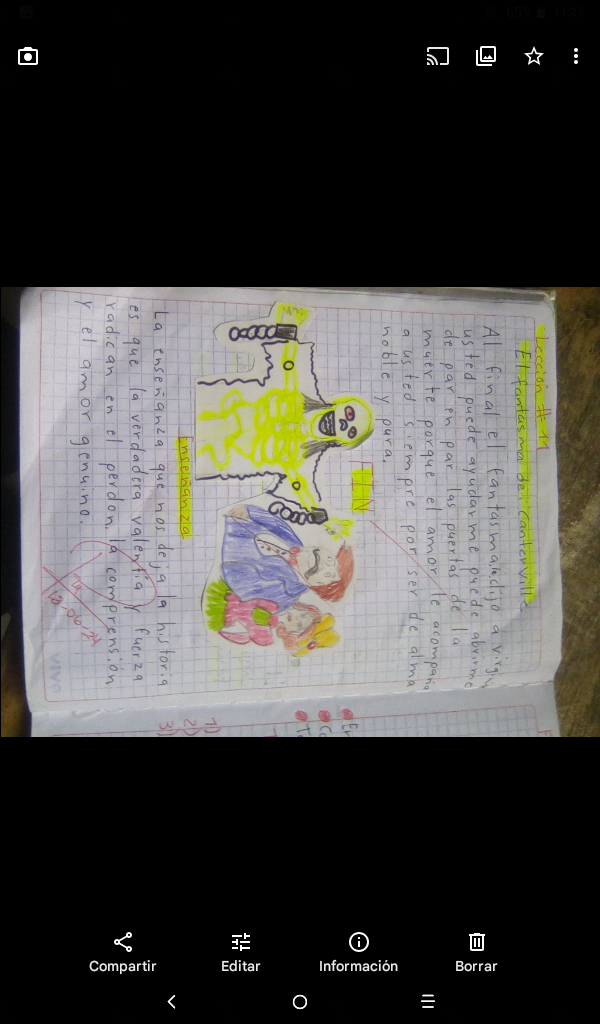 65%
11:25
Lección # 11
El fantasma de Canterville
Al final el fantasma dijo a virgin
usted puede ayudarme puede abrirme
de par en par las puertas de la
muerte porque el amor le acompaña
a usted siempre por ser de alma
noble y pura.
FIN
Enseñanza
La enseñanza que nos deja la historia
es que la verdadera valentía y fuerza
radican en el perdon, la comprensión
y el amor genuino.
18-06-24
1)
2)
3)
Compartir
Editar
Información
Borrar